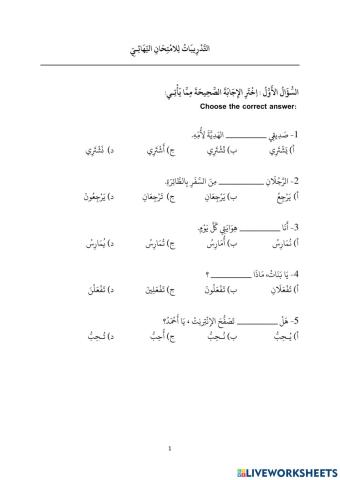 التَّدْرِيبَاتُ لِلامْتِحَانِ النِّهَائِيّ
السُّؤَالُ الأَوَّلُ : اِخْتَرِ الإِجَابَةَ الصَّحِيحَةَ مِمَّا يَأْتِي:
Choose the correct answer:
1- صَدِيقِي __________ الهَدِيَّةَ لِأُمِّهِ.
أ) يَشْتَرِي ب) تَشْتَرِي ج) أَشْتَرِي د) نَشْتَرِي
2- الرَّجُلَانِ __________ مِنَ السَّفَرِ بِالطَّائِرَةِ.
أ) يَرْجِعُ ب) يَرْجِعَانِ ج) تَرْجِعَانِ د) يَرْجِعُونَ
3- أَنَا __________ هِوَايَتِي كُلَّ يَوْمٍ.
أ) نُمَارِسُ ب) أُمَارِسُ ج) تُمَارِسُ د) يُمَارِسُ
4- يَا بَنَاتُ، مَاذَا __________ ؟
أ) تَفْعَلَانِ ب) تَفْعَلُونَ ج) تَفْعَلِينَ د) تَفْعَلْنَ
5- هَلْ __________ تَصَفُّحَ الإِنْتِرنِتْ ، يَا أَحْمَدُ؟
أ) يُحِبُّ ب) نُحِبُّ ج) أُحِبُّ د) تُحِبُّ
1
LIVEWORKSHEETS